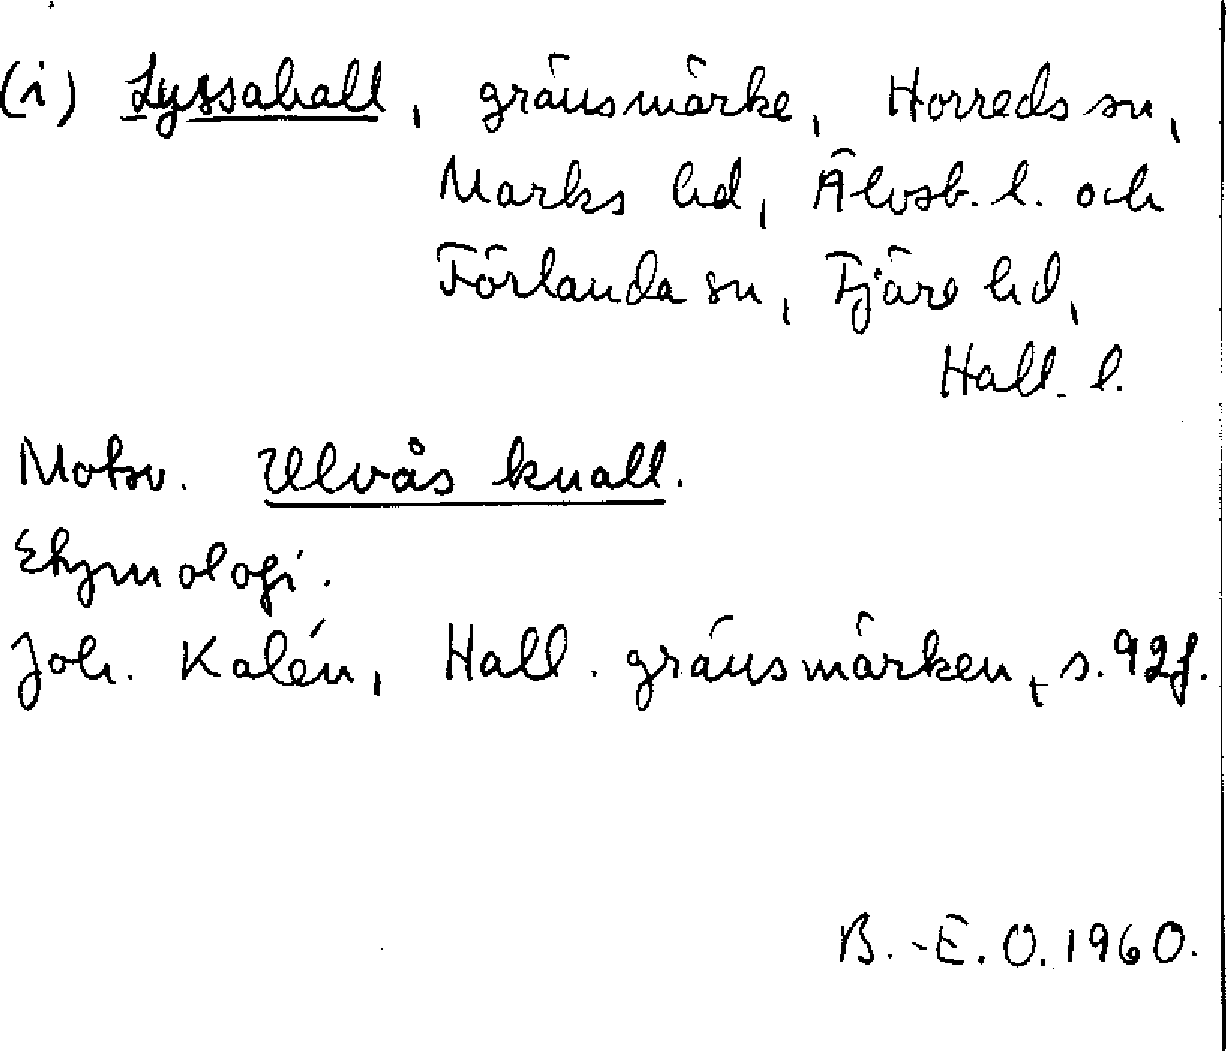 (i) Lyssahall, gränsmärke, Horreds sn,
Marks hd, Älvsb. l. och
Förlanda sn, Fjäre hd,
Hall. l.
Motsv. Ulvås knall.
Etymologi.
Joh. Kalén, Hall. gränsmärken, s. 92f.
B.-E. O. 1960.